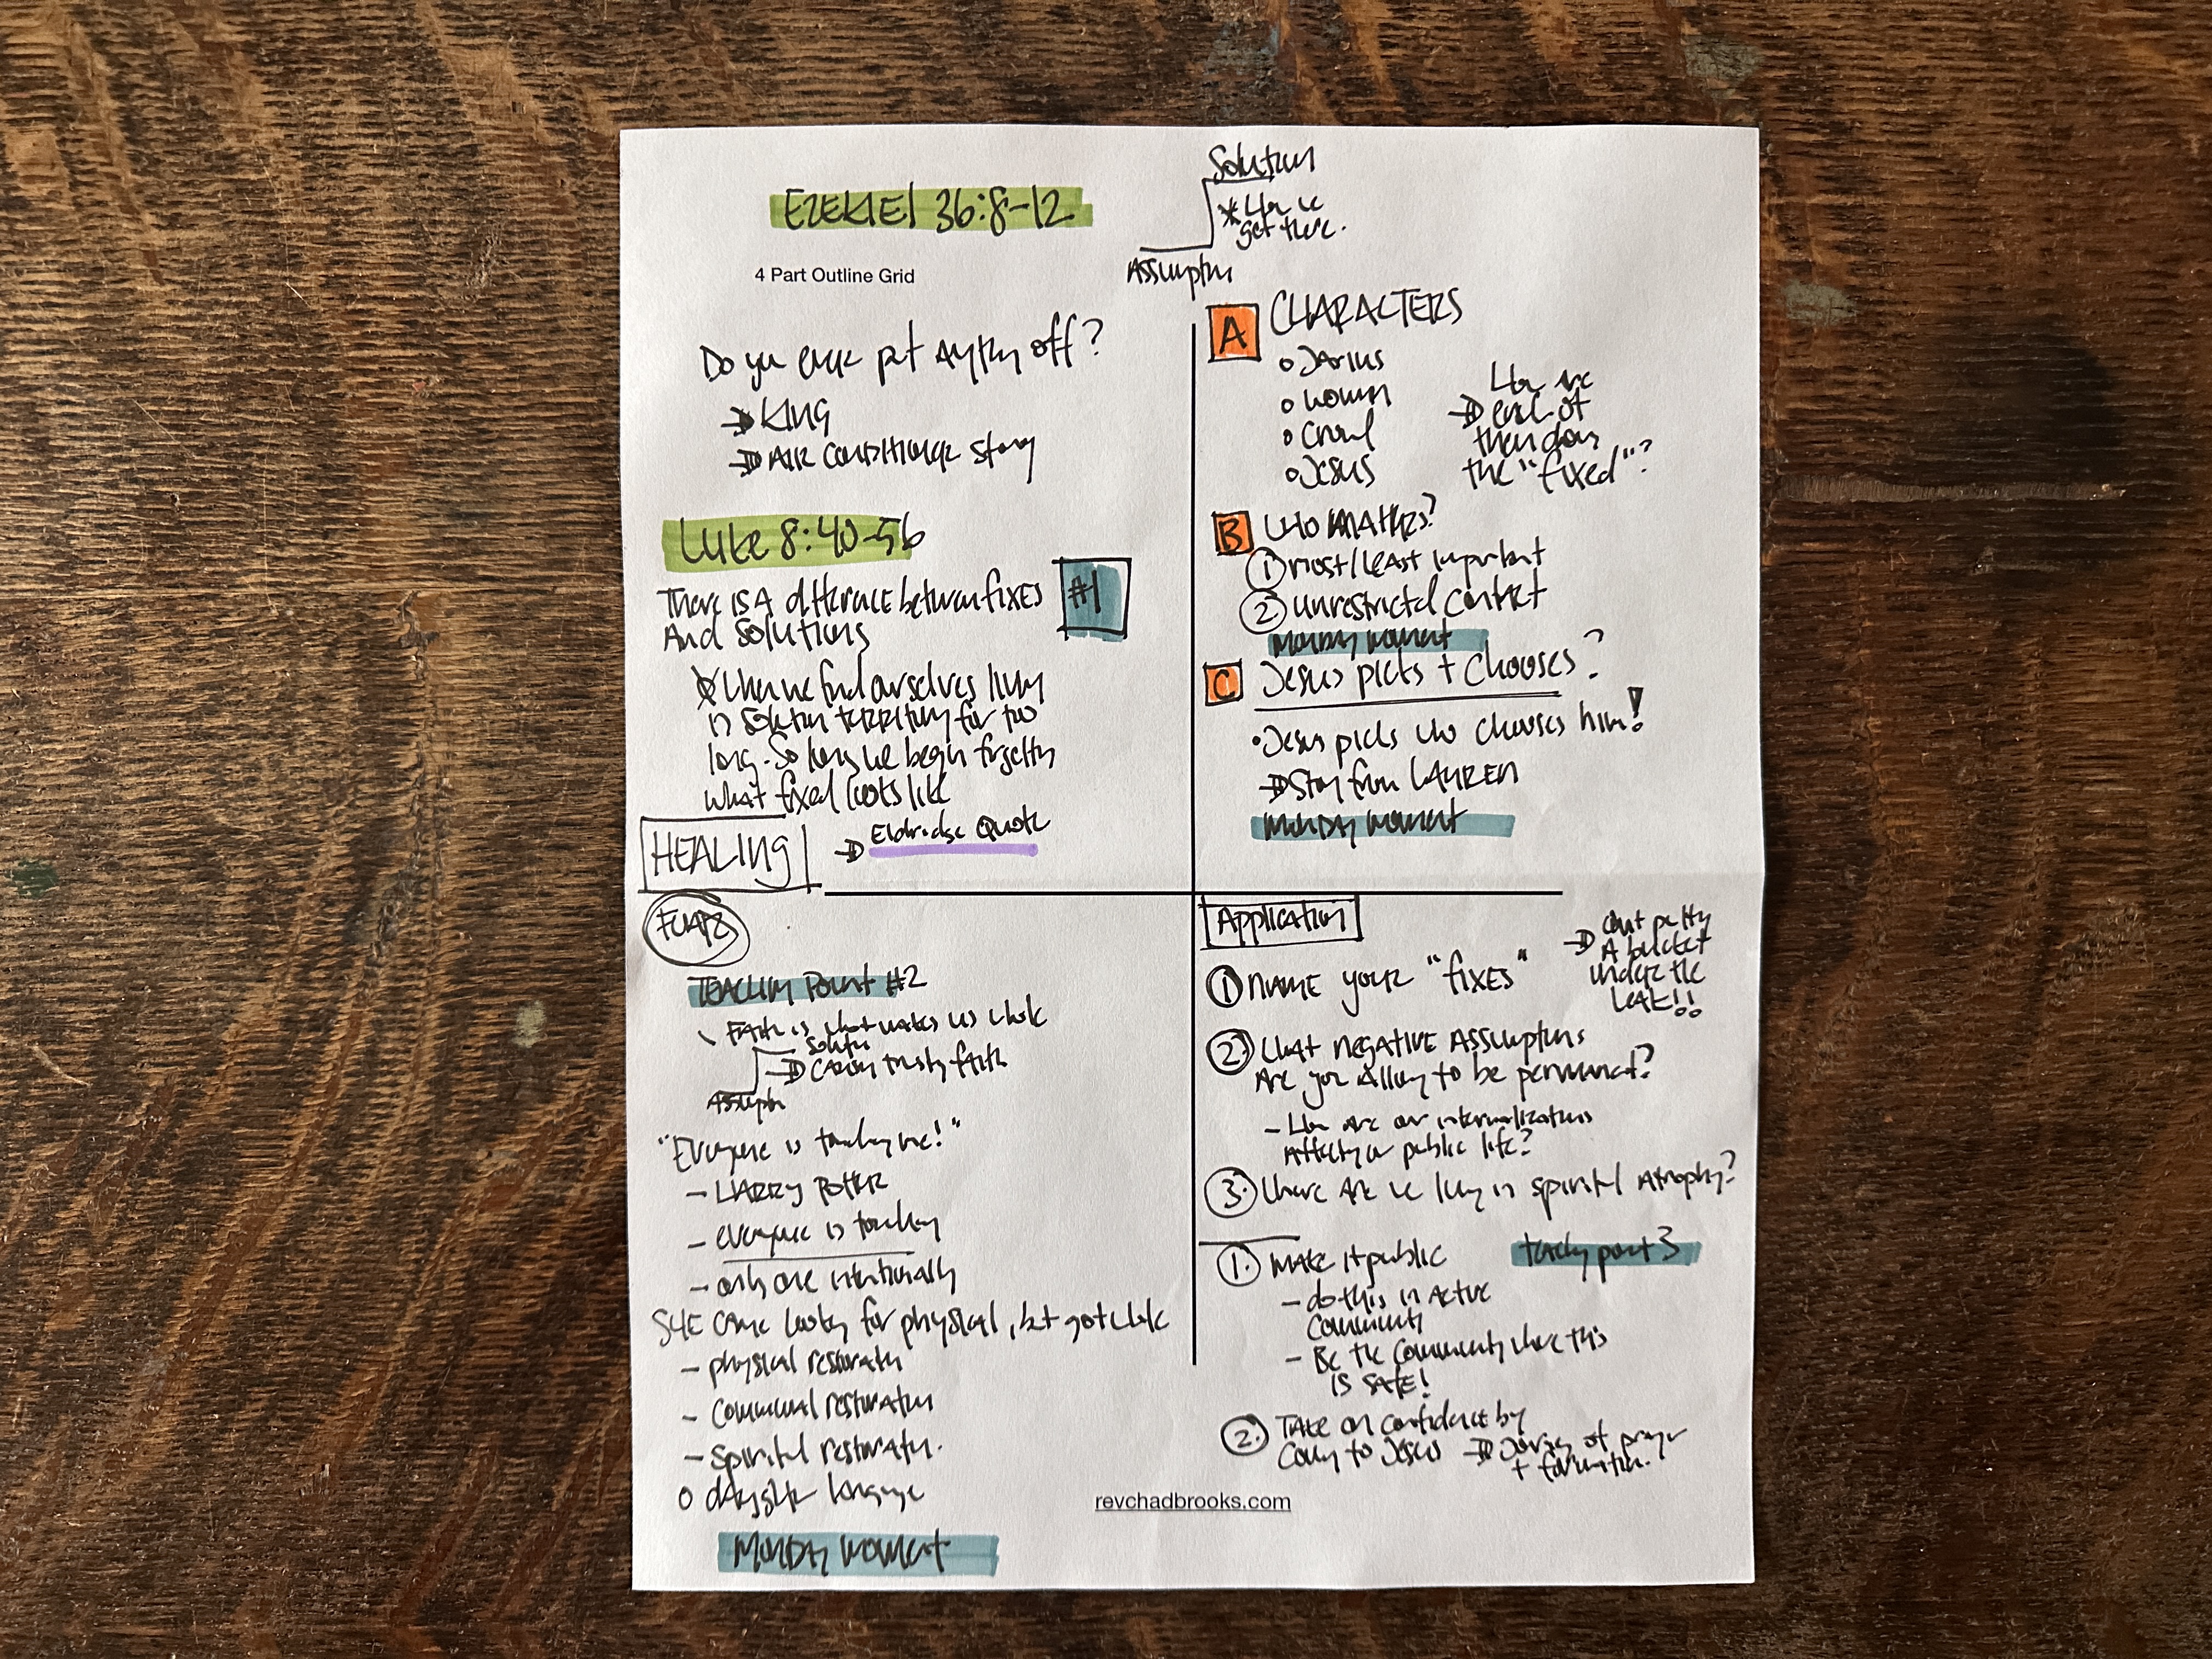 EZEKIEL 36:8-12
Solution
* How we
get there.
Assumption
4 Part Outline Grid
Do you ever put anything off?
→ KING
→ AIR CONDITIONER Story
Luke 8:40-56
There is A difference between fixes
And Solutions
#1
* When we find ourselves living
in solution territory for too
long. So long we begin forgetting
what fixed looks like
→ Eldridge Quote
HEALING
A CHARACTERS
o Jarius
o woman
o Crowd
o Jesus
→ How are
each of
them
the "fixed"?
B Who Matters?
① Most/Least Important
② Unrestricted Contact
Monday Moment
C Jesus picks + chooses?
• Jesus picks who chooses him!
→ Story from LAUREN
Monday Moment
Teaching Point #2
Faith is what makes us whole
Solution
→ trusting faith
Assumption
"Everyone is touching me!"
- HARRY POTTER
- everyone is touching
- only one intentionally
SHE came looking for physical, but got whole
- physical restoration
- Communal restoration
- Spiritual restoration.
o daughter language
Monday Moment
Application
① NAME your "fixes"
→ Quit putting
A bucket
under the
leak!!
② What negative Assumptions
Are you Allowing to be permanent?
- How are our internalizations
Affecting our public life?
③ Where Are we living in spiritual Atrophy?
teaching point 3
① Make it public
- do this in Active
Community
- Be the community where this
is SAFE!
② Take on confidence by
Coming to Jesus → of prayer
+ formation.
revchadbrooks.com